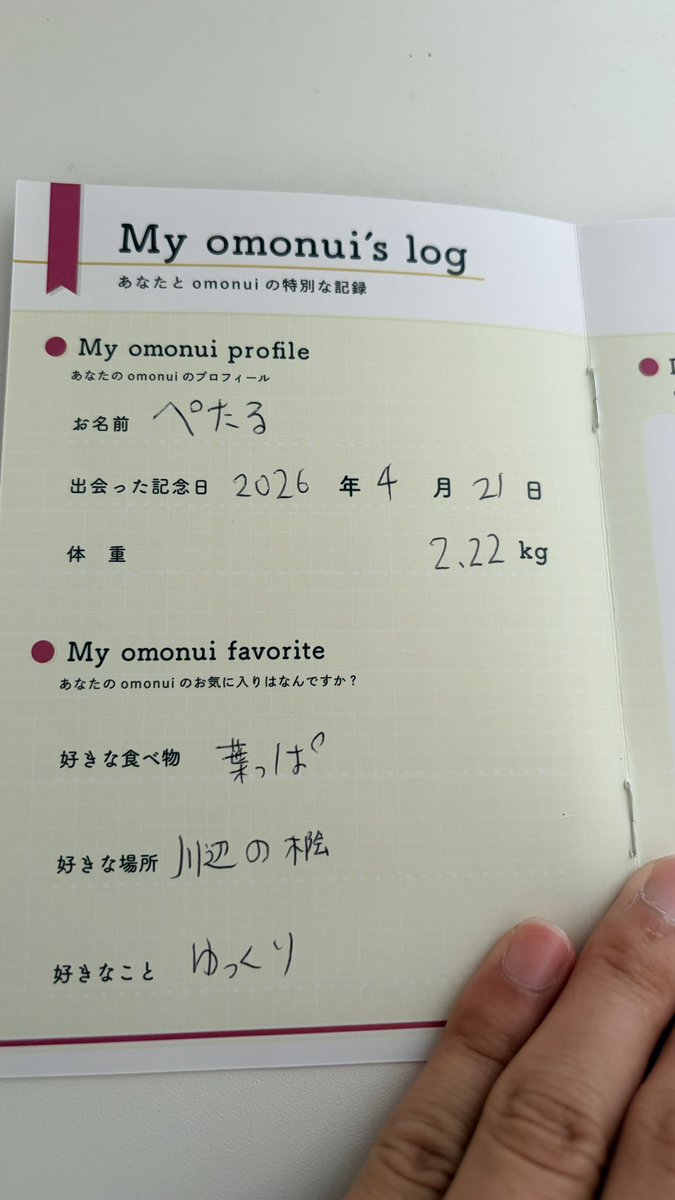 My omonui's log
あなたとomonuiの特別な記録
My omonui profile
あなたのomonuiのプロフィール
お名前 ぺたる
出会った記念日 2026 年 4 月 21 日
体 重 2.22 kg
My omonui favorite
あなたのomonuiのお気に入りはなんですか？
好きな食べ物 葉っぱ
好きな場所 川辺の桧
好きなこと ゆっくり